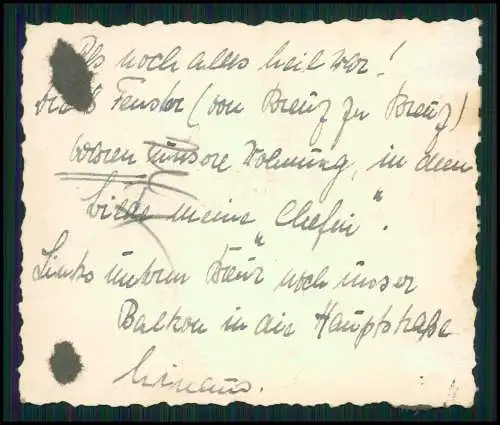 Als noch alles heil war!
Fenster (von Kreuz zu Kreuz)
waren unsere Wohnung, in dem
Bilde meine „Chefin".
Links unterm Kreuz noch unser
Balkon in die Hauptstraße
hinaus.